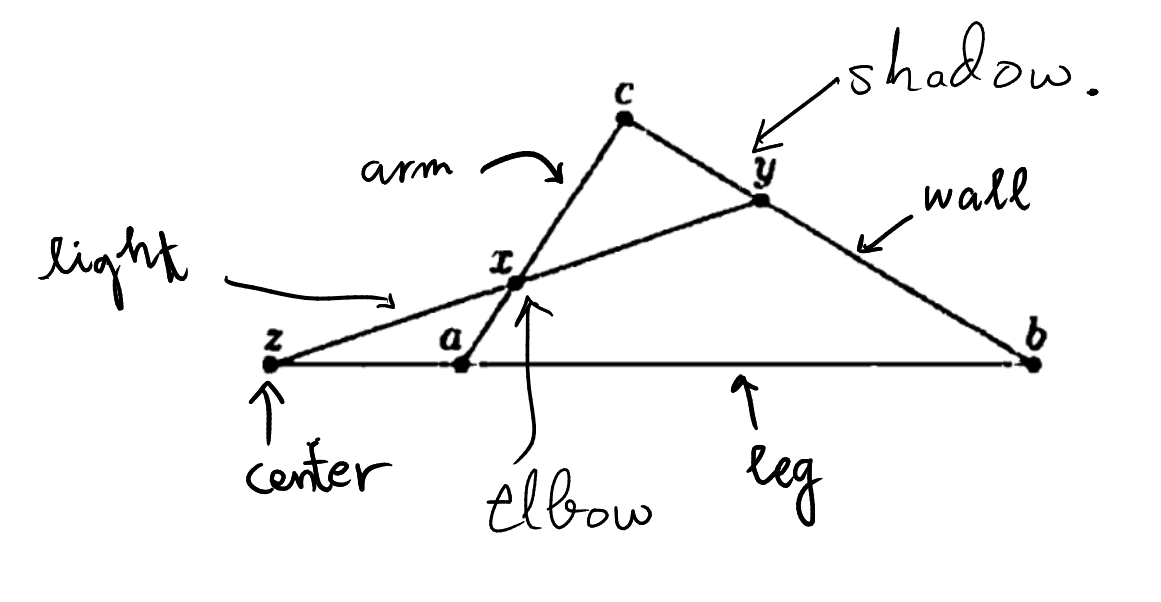 shadow.
c
arm
y
wall
light
x
z
a
b
center
Elbow
leg